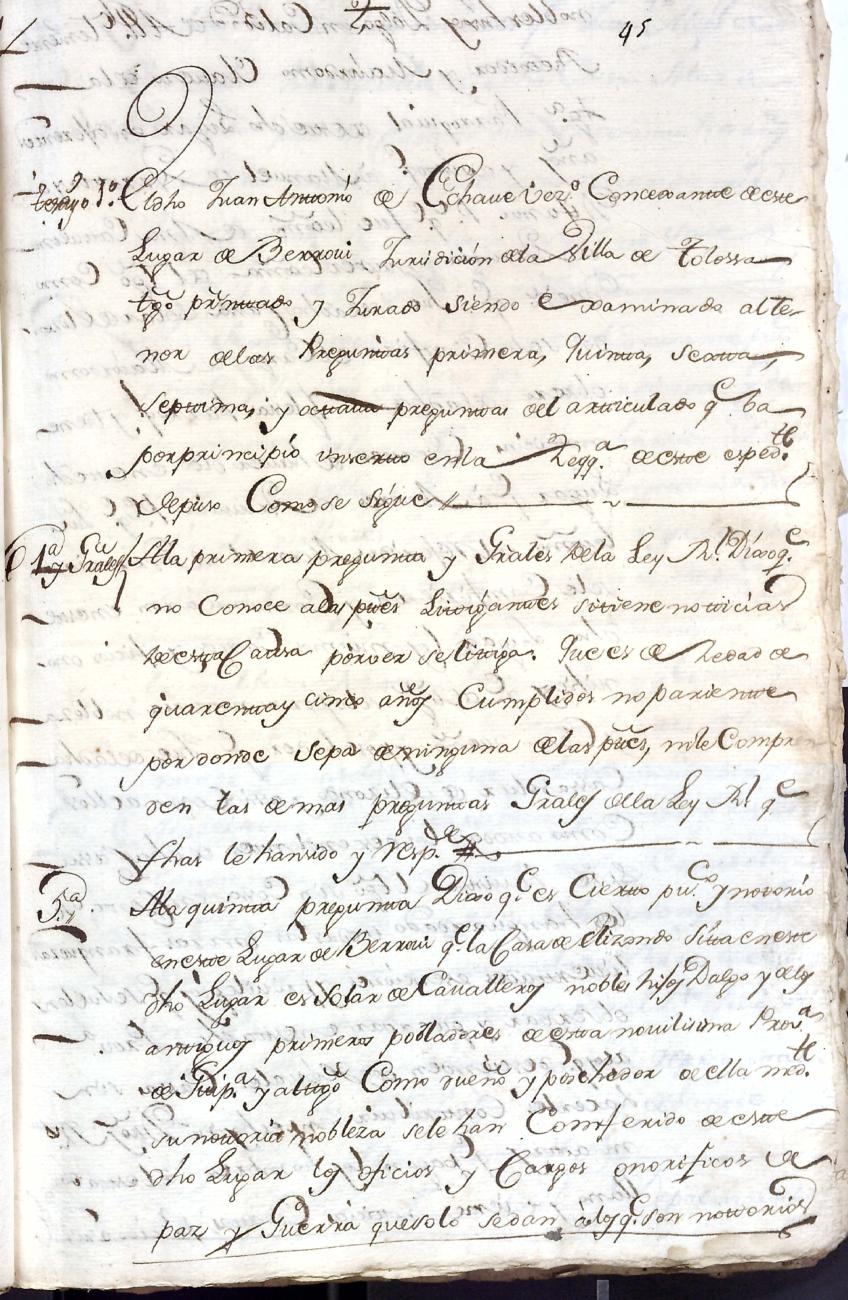 45
testigo 1º. El dho Juan Antonio de Echaue vezº. Concexante de este
Lugar de Berroui Jurisdición de la Villa de Tolossa
tgo presentado y Jurado siendo examinado al te-
nor de las Preguntas primera, quinta, sexta,
septima, y octaua preguntas del articulado qe. ba
por principio inserto en la Reqqa. de este espedte.
depuso Como se sigue
1a. y Grales A la primera pregunta y Grales de la Ley Rl. Dixo qe.
no Conoce a las ptes Litigantes si tiene noticias
de esta Causa por ver se litiga. Que es de hedad de
quarenta y cinco años Cumplidos no pariente
por donde sepa de ninguna de las ptes, ni le Compren
den las demas preguntas Grales de la Ley Rl. qe.
fhas le han sido y respde.
5a. A la quinta pregunta Dixo qe. es Cierto puco. y notorio
en este Lugar de Berroui qe. la Casa de Elizondo sita en este
dho Lugar es Solar de Cavalleros nobles hijos Dalgo y de los
antiguos primeros pobladores de esta novilisima Prova.
de Guipa. y al tgo Como dueño y posehedor de ella medte.
su notoria nobleza se le han Comferido de este
dho Lugar los oficios y Cargos onorificos de
paz y Guerra que solo se dan a los qe. son notorios